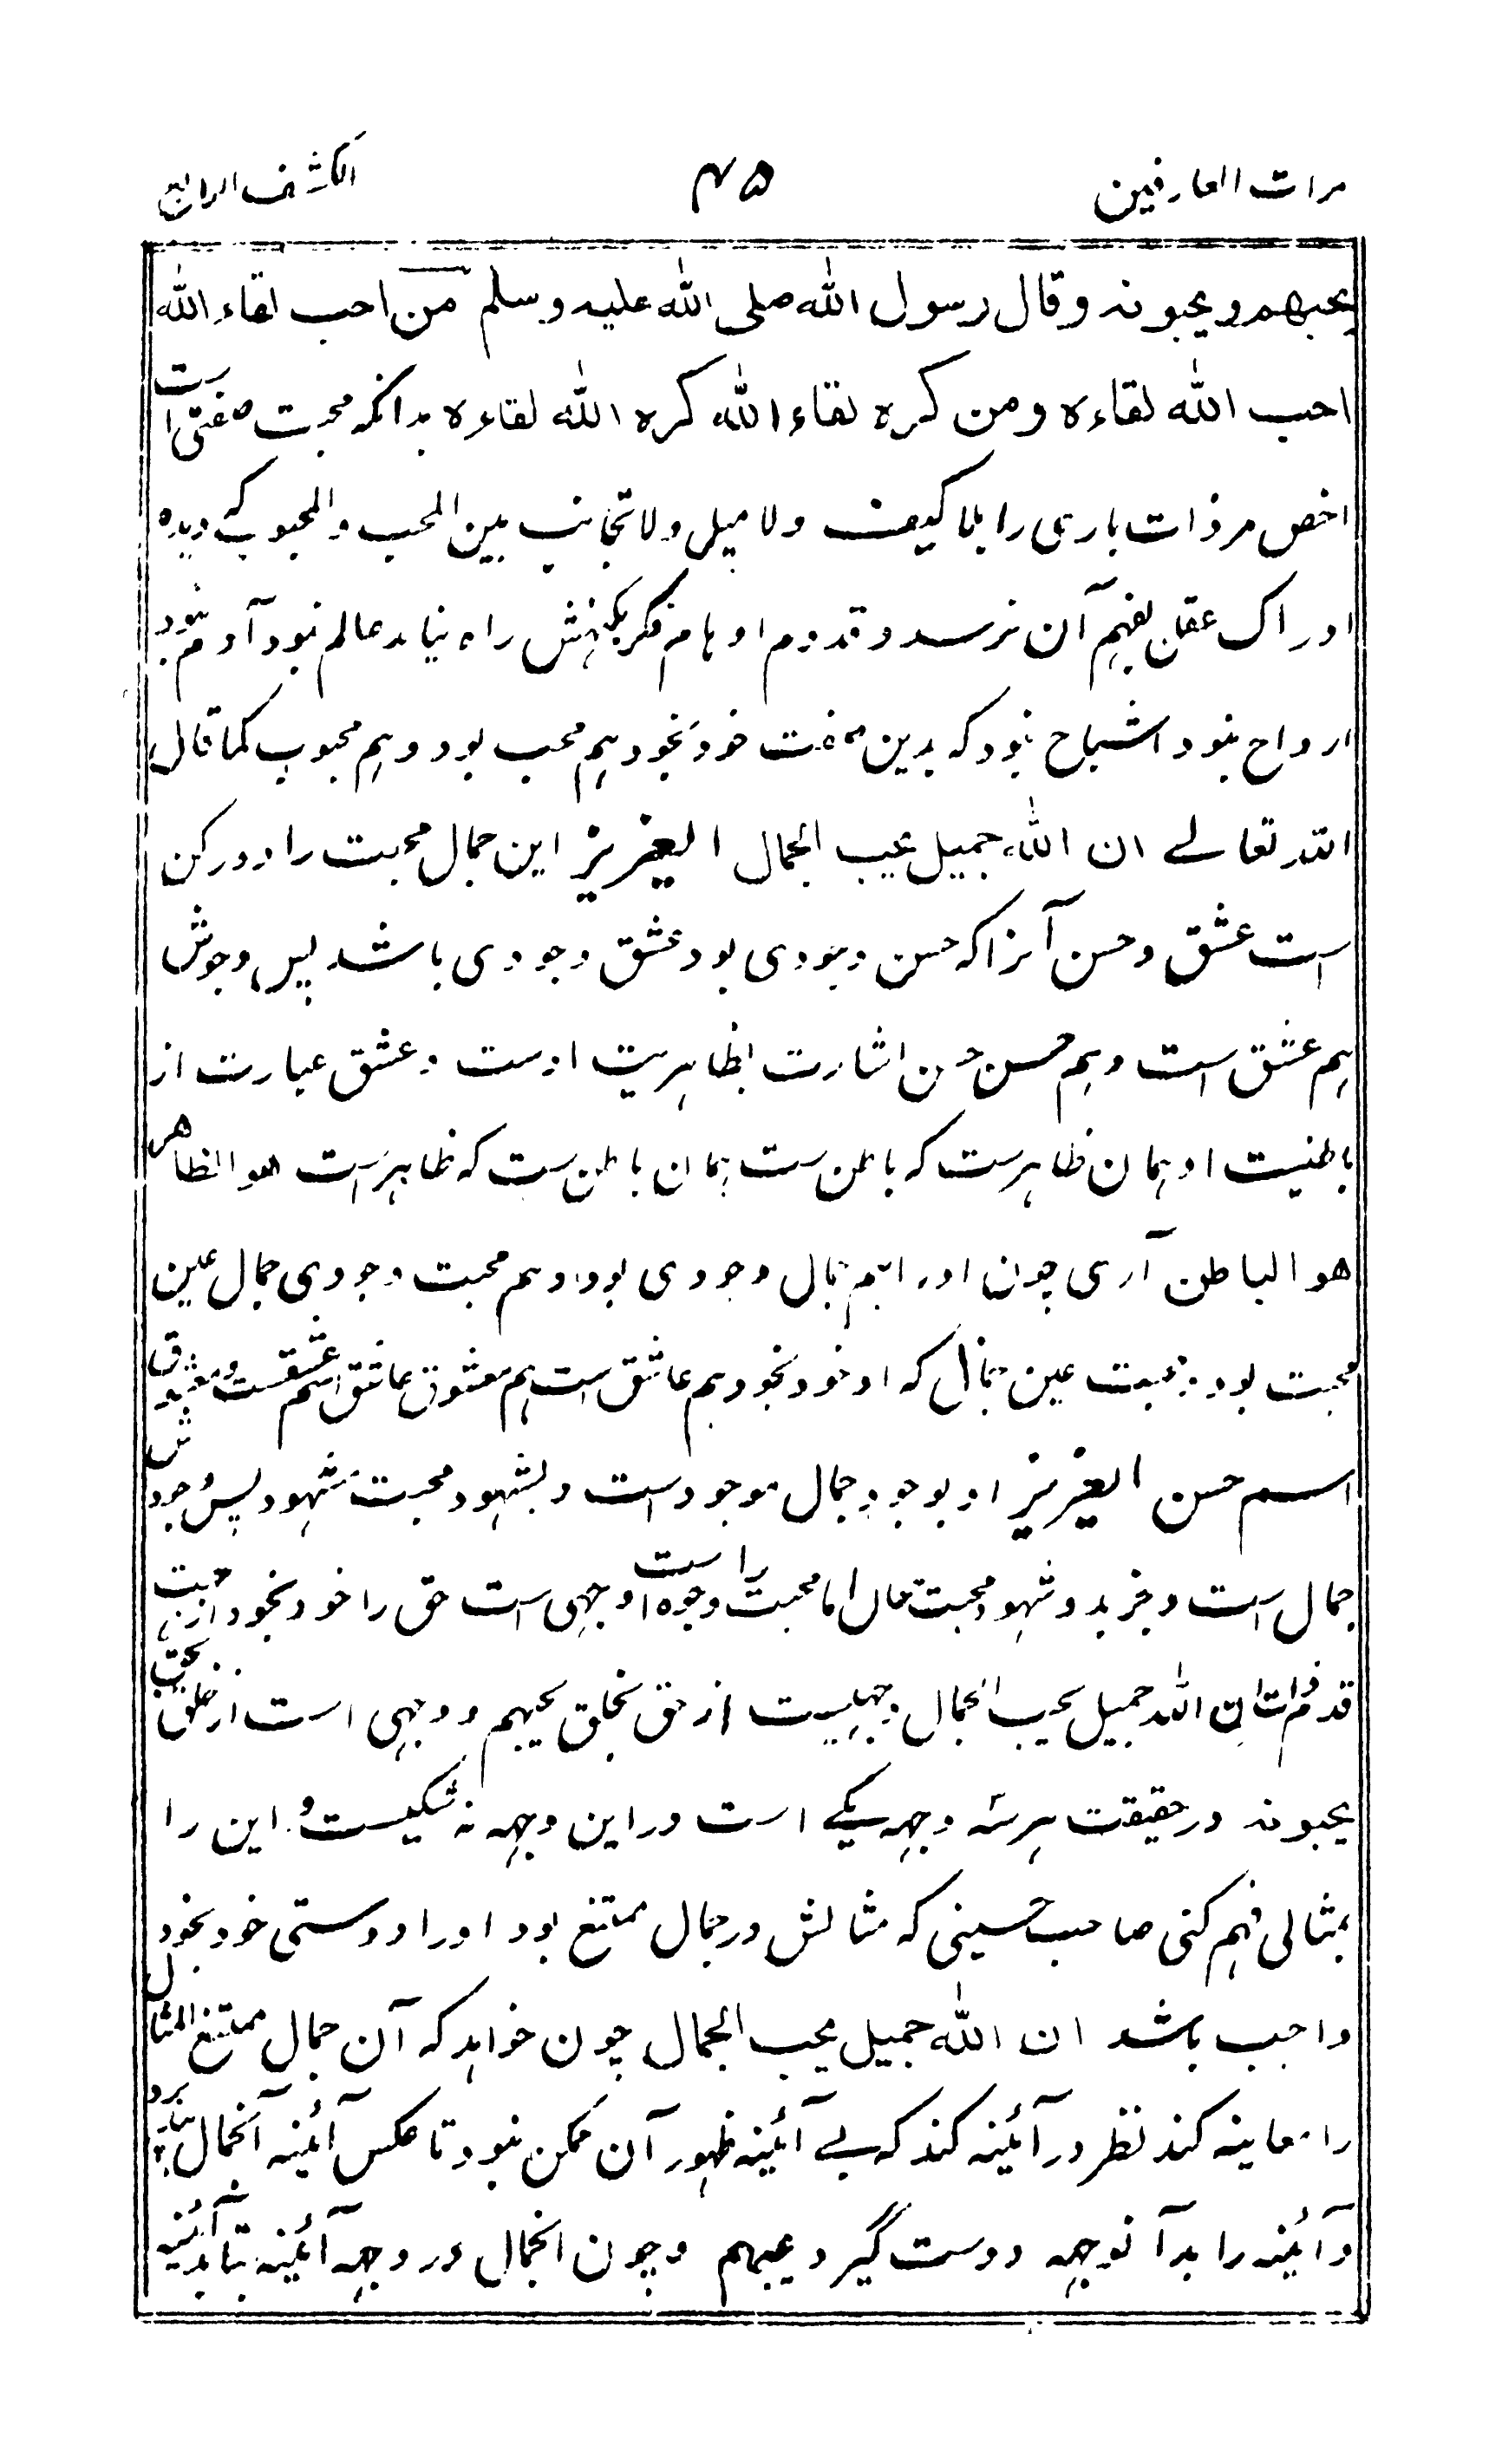 مرات العارفین ۴۵ الکشف الرابع
یحبهم ویحبونه وقال رسول الله صلی الله علیه وسلم من احب لقاء الله
احب الله لقاءه ومن کره لقاء الله کره الله لقاءه بدانکه محبت صفتی است
اخص مر ذات باری را بلا کیف ولا میل ولا تجانب بین المحب والمحبوب که دیده
ادراک عقل بفهم آن نرسد و قدوم اوهام فکر بکنهش راه نیابد عالم نبود آدم نبود
ارواح نبود اشباح نبود که بدین صفت خود بخود هم محب بود و هم محبوب کما قال
الله تعالے ان الله جمیل یحب الجمال العزیز این جمال محبت را دو رکن
است عشق و حسن آنرا که حسن وجودی بود عشق وجودی باشد پس وجودش
هم عشق است و هم حسن حسن اشارت بظاهریت اوست و عشق عبارت از
باطنیت او همان ظاهرست که باطن ست همان باطن ست که ظاهرست هو الظاهر
هو الباطن آری چون او را هم جمال وجودی بود و هم محبت وجودی جمال عین
محبت بود و محبت عین جمال که او خود بخود هم عاشق است هم معشوق عاشق اسم عشقست و معشوق
اسم حسن العزیز او بوجود جمال موجودست و بشهود محبت مشهود پس وجودش
جمال است و شهود محبت اما محبت را وجوه است وجهی است حق را خود بخود از محبت
قدم ذات ان الله جمیل یحب الجمال وجهیست از حق بخلق یحبهم و وجهی است از خلق بحق
یحبونه در حقیقت هر سه وجهه یکے است در این وجهه نه شکیست و این را
بمثالی فهم کنی صاحب حسینی که مثالش در جمال ممتنع بود او را دوستی خود بخود
واجب باشد ان الله جمیل یحب الجمال چون خواهد که آن جمال ممتنع المثال
را معاینه کند نظر در آئینه کند که بے آئینه ظهور آن ممکن نبود تا عکس آئینه آنجمال
و آئینه را بدآنوجهه دوست گیرد یحبهم و چون آنجمال در وجهه آئینه بتابد آئینه